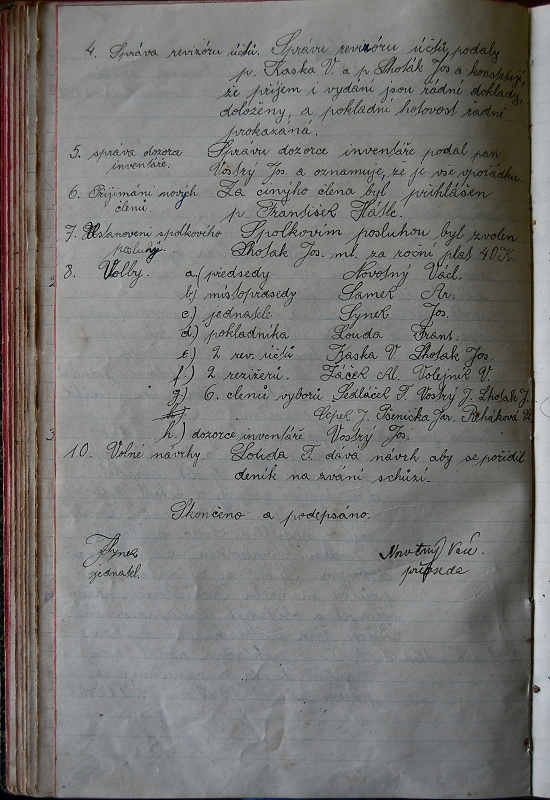 4. Správa revizóru účtů. Správu revizóru účtů, podaly
p. Kaska V. a p. Lhoták Jos a konstatují,
že příjem i vydání jsou řádné doklady,
doloženy, a pokladní hotovost řádně
prokazaná.
5. správa dozorce Správu dozorce inventáře podal pan
inventáře. Vostrý Jos. a oznamuje, že je vše vpořádku.
6. Přijímání nových Za činýho člena byl přihlášen
členů. p. František
7. Ustanovení spolkového Spolkovím posluhou byl zvolen
posluhy. Lhoták Jos. ml. za roční plat 40 K.
8. Volby. a.) předsedy Novotný Václ.
b.) místopřdsedy Samek Ar.
c.) jednatele Synek Jos.
d.) pokladníka Louda Frant.
e.) 2 rev. účtů Kaska V. Lhoták Jos.
f.) 2 režižerů. Žáček Al. Volejník V.
g.) 6. clenů vyborů Sedláček F. Vostrý J. Lhoták J.
Vepek J. Pšenička Jar. Řeháková
h.) dozorce inventáře Vostrý Jos.
10. Volné návrhy. Louda F. dává návrh aby se pořidil
deník na zvání schůzí.
Skončeno a podepsáno.
JSynek Novotný Vác.
jednatel. předseda